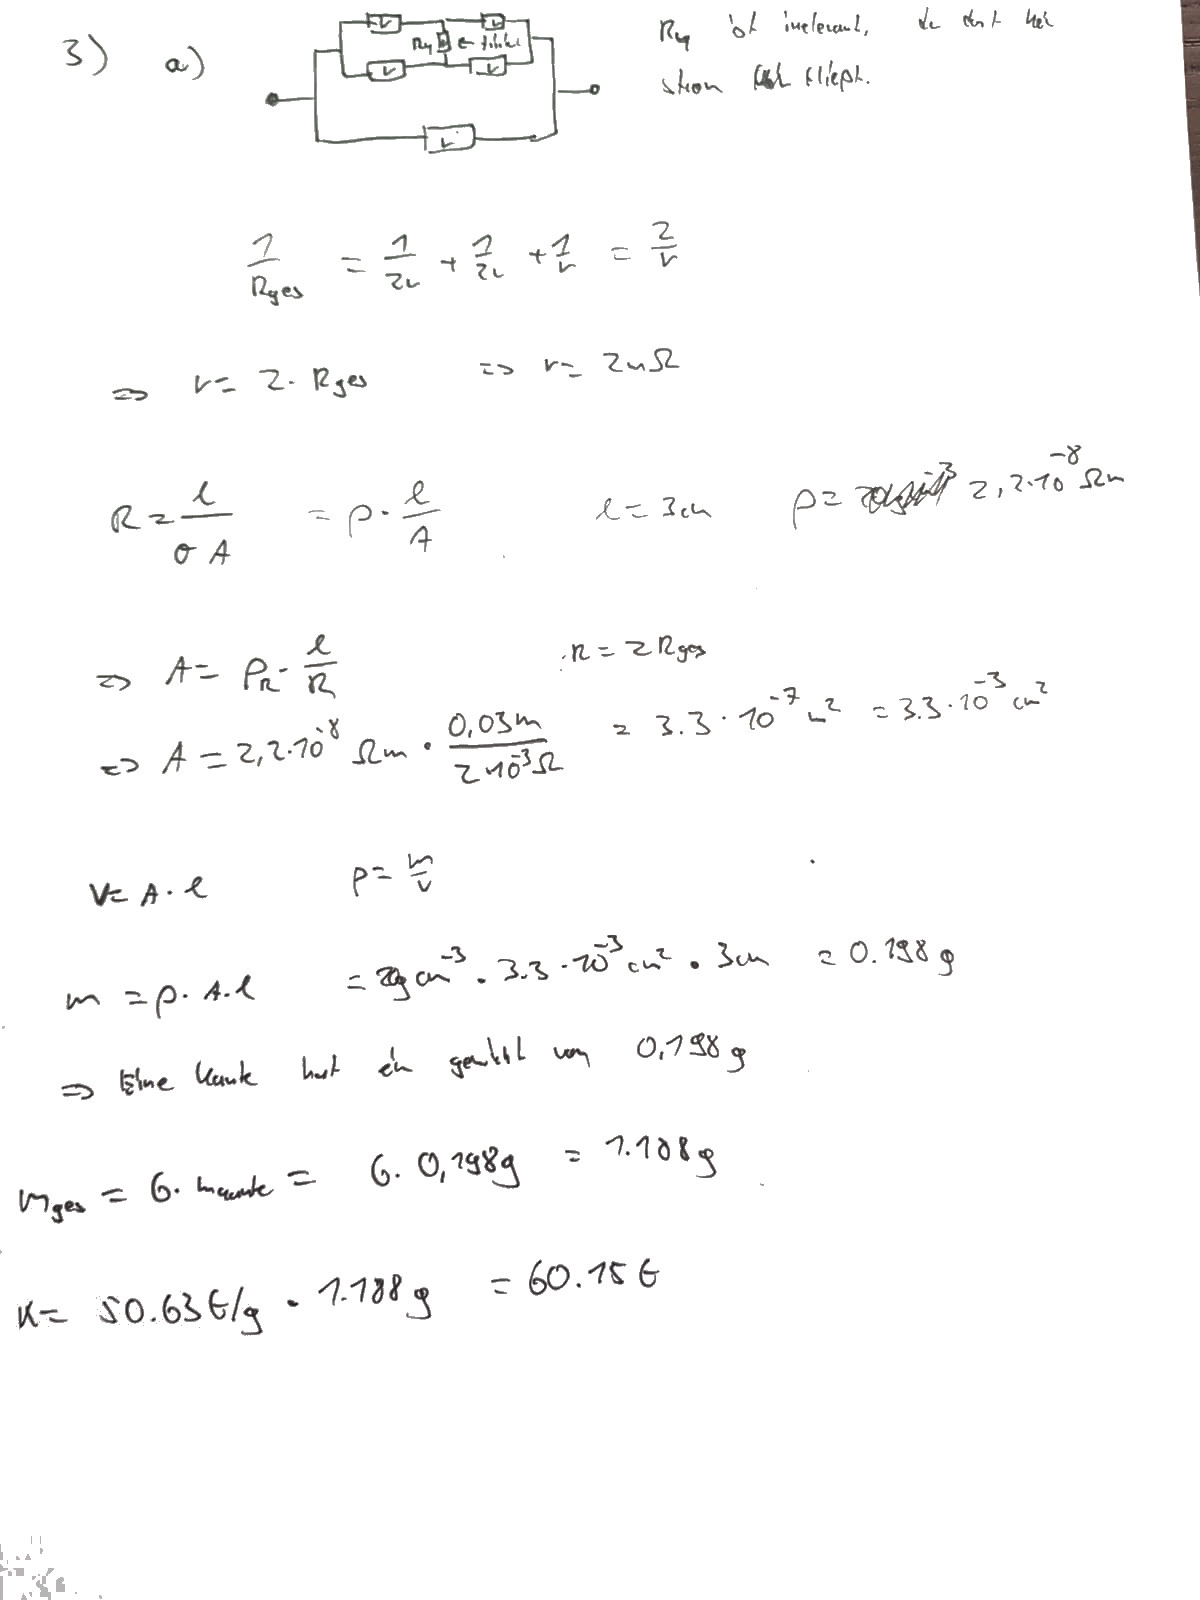 3) a)
R4 ist irrelevant, da dort kein
Strom fließt.
1/Rges = 1/2r + 1/2r + 1/r = 2/r
=> r = 2 · Rges => r = 2mΩ
R = l/σA = ρ · l/A l = 3cm ρ = 2,2·10^-8 Ωm
=> A = ρR · l/R R = 2Rges
=> A = 2,2·10^-8 Ωm · 0,03m/2·10^-3Ω = 3.3 · 10^-7 m² = 3.3·10^-3 cm²
V = A · l ρ = m/V
m = ρ · A·l = g cm^-3 · 3.3·10^-3 cm² · 3cm = 0.198g
=> Eine Kante hat ein gewicht von 0,198g
mges = 6 · mkante = 6 · 0,198g = 1.188g
K = 50.63€/g · 1.188g = 60.15€